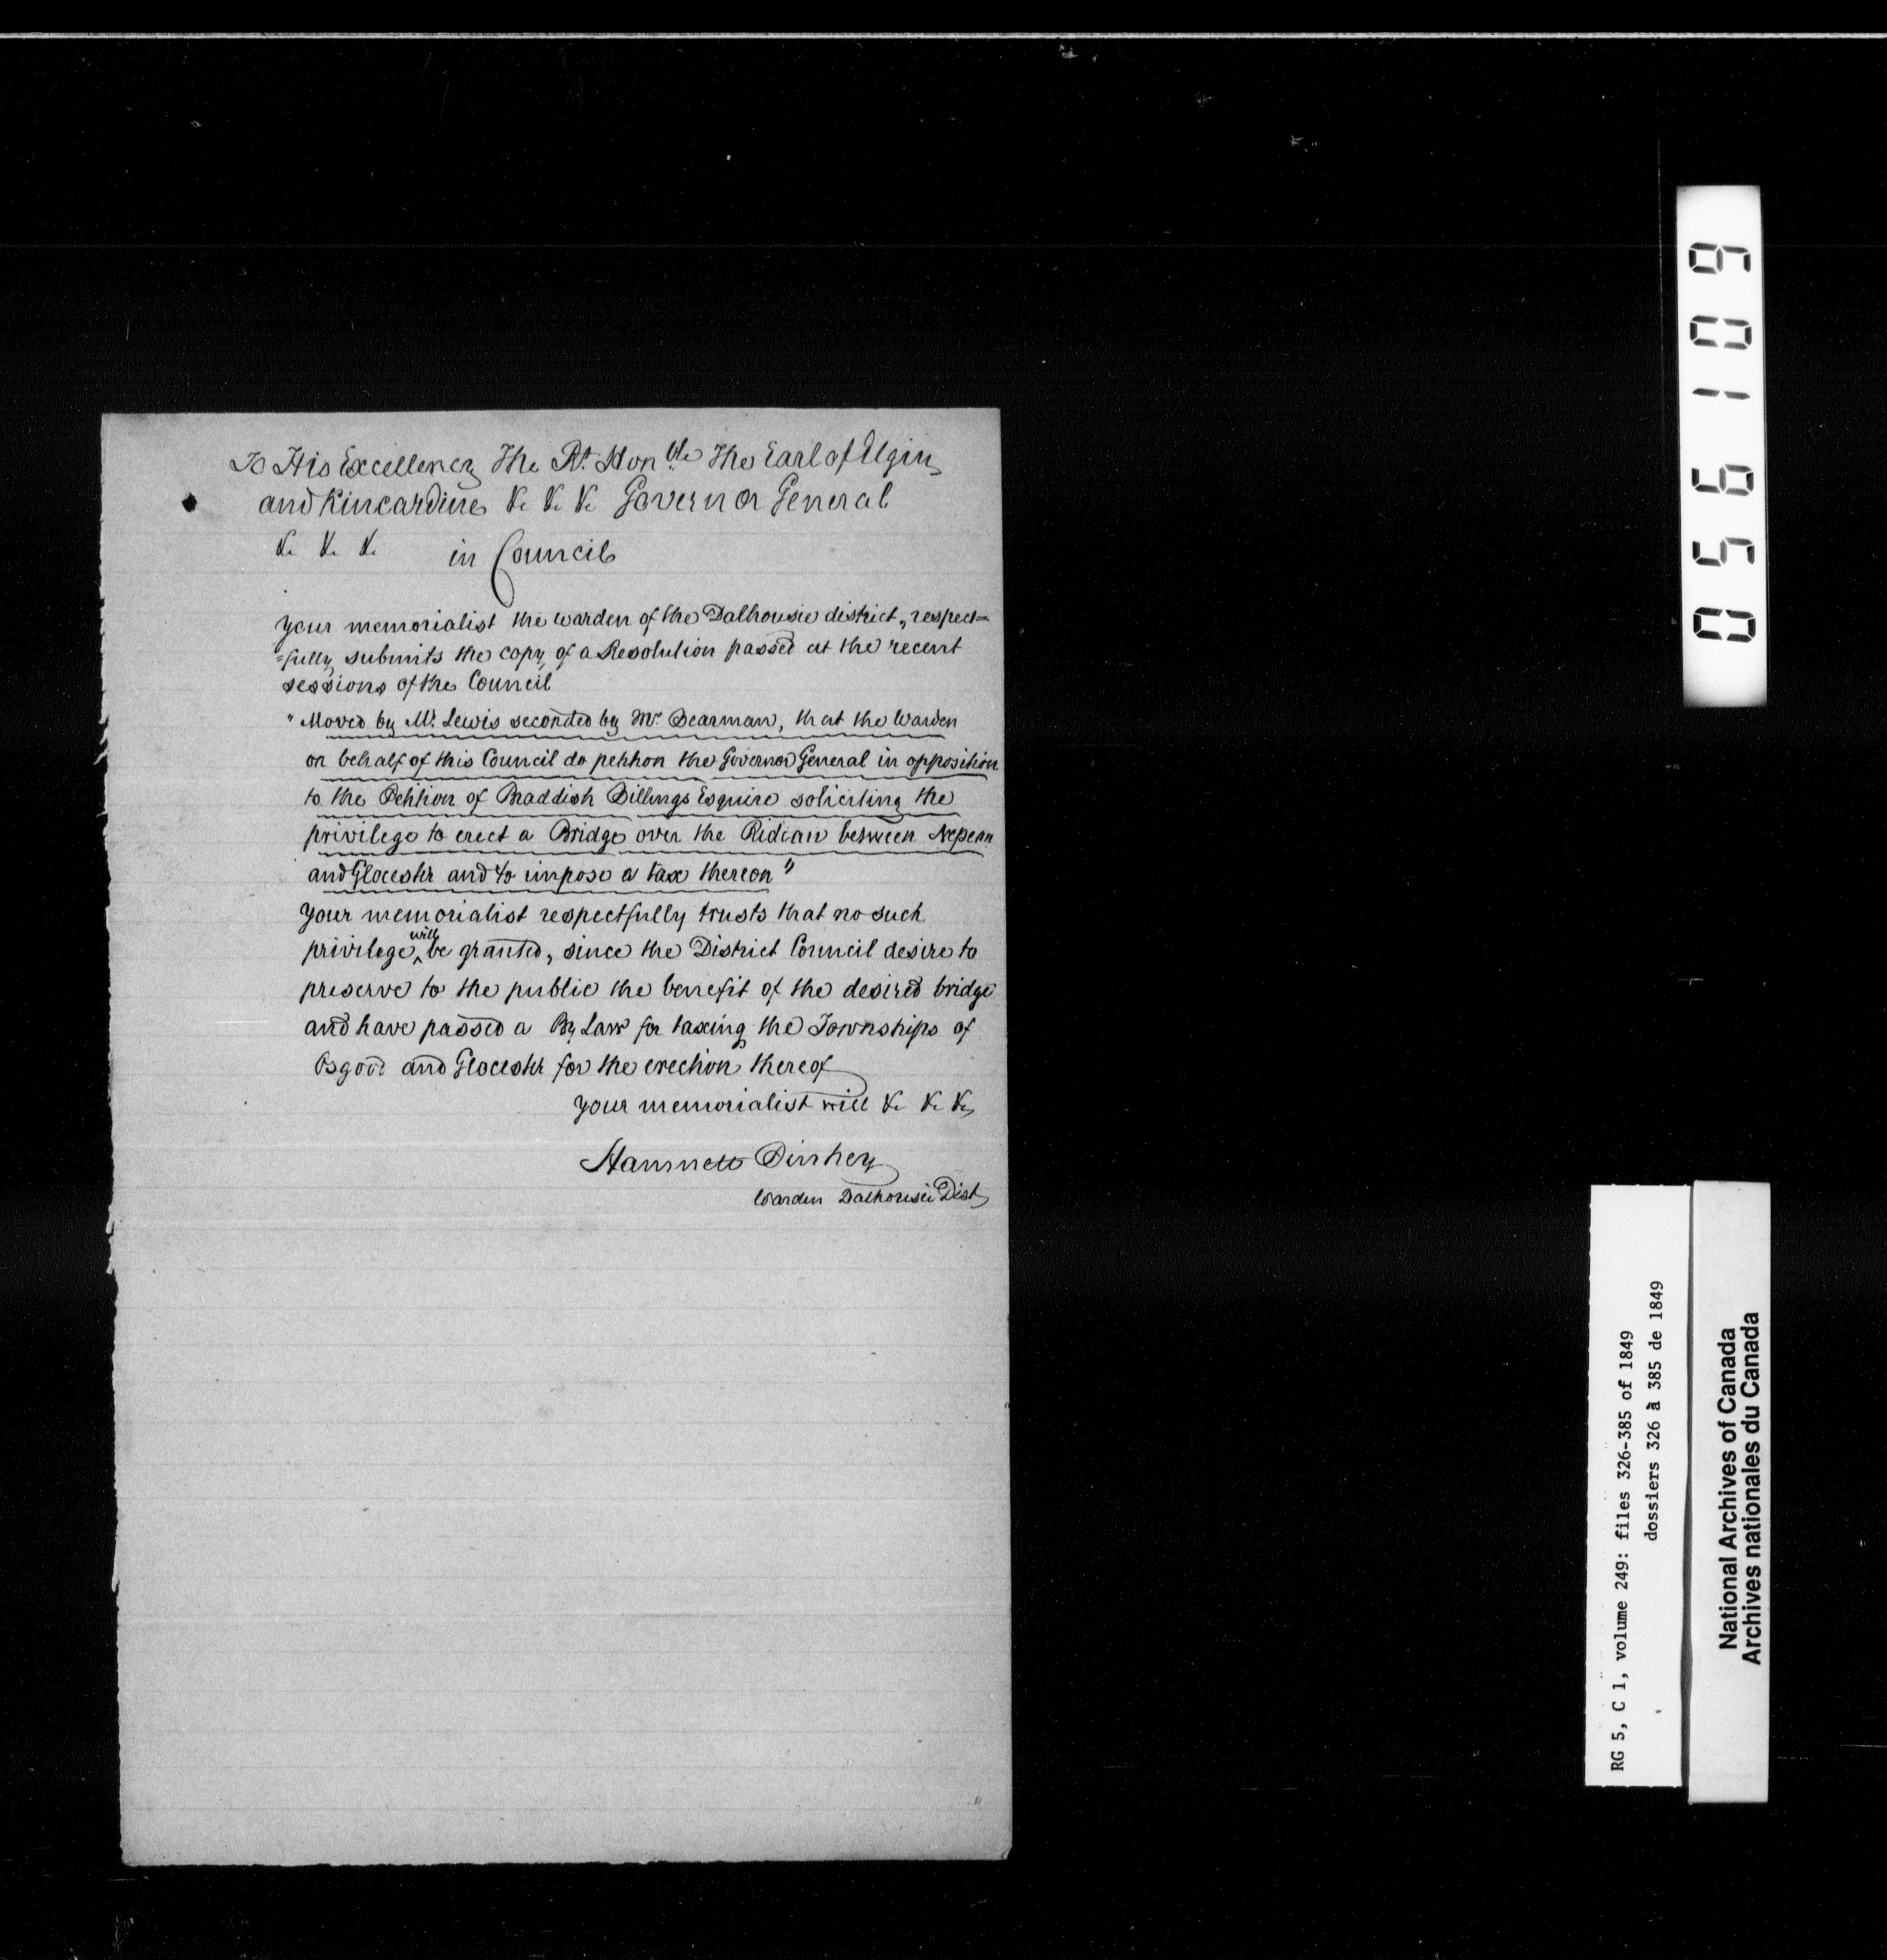 To His Excellency The Rt. Honble The Earl of Elgin
and Kincardine &c &c &c Governor General
&c &c &c in Council
Your memorialist the warden of the Dalhousie district, respect=
=fully submits the copy of a Resolution passed at the recent
sessions of the Council
"Moved by Mr. Lewis seconded by Mr. Bearman, that the Warden
on behalf of this Council do petition the Governor General in opposition
to the Petition of Braddish Billings Esquire soliciting the
privilege to erect a Bridge over the Rideau between Nepean
and Glocester and to impose a tax thereon"
Your memorialist respectfully trusts that no such
privilege will be granted, since the District Council desire to
preserve to the public the benefit of the desired bridge
and have passed a By Law for taxing the Townships of
Osgood and Glocester for the erection thereof
Your memorialist will &c &c &c
Hamnett Pinhey
Warden Dalhousie Dist
056109
RG 5, C 1, volume 249: files 326-385 of 1849
dossiers 326 à 385 de 1849
National Archives of Canada
Archives nationales du Canada